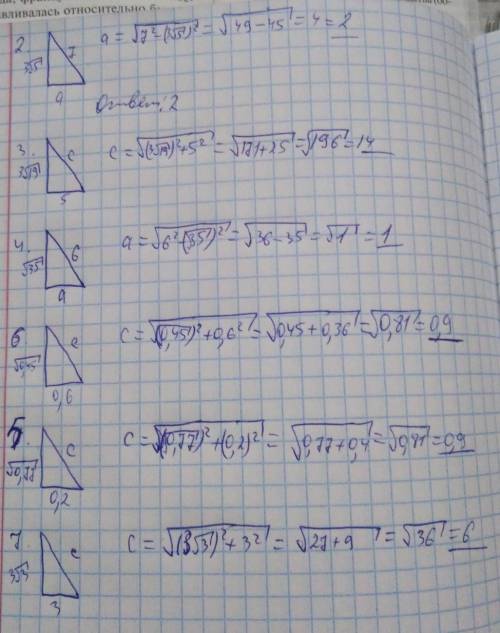 авливалась относительно б-
2. 3√5 7 a a = √(7²-(3√5)²) = √(49-45) = 4 = 2
Ответ: 2
3. 3√19 c 5 c = √((3√19)²+5²) = √(171+25) = √196 = 14
4. √35 6 a a = √(6²-(√35)²) = √(36-35) = √1 = 1
6 √0,45 c 0,6 c = √((0,45)²+0,6²) = √(0,45+0,36) = √0,81 = 0,9
5. √0,77 c 0,2 c = √((0,77)²+(0,2)²) = √(0,77+0,4) = √0,81 = 0,9
7. 3√3 c 3 c = √((3√3)²+3²) = √(27+9) = √36 = 6